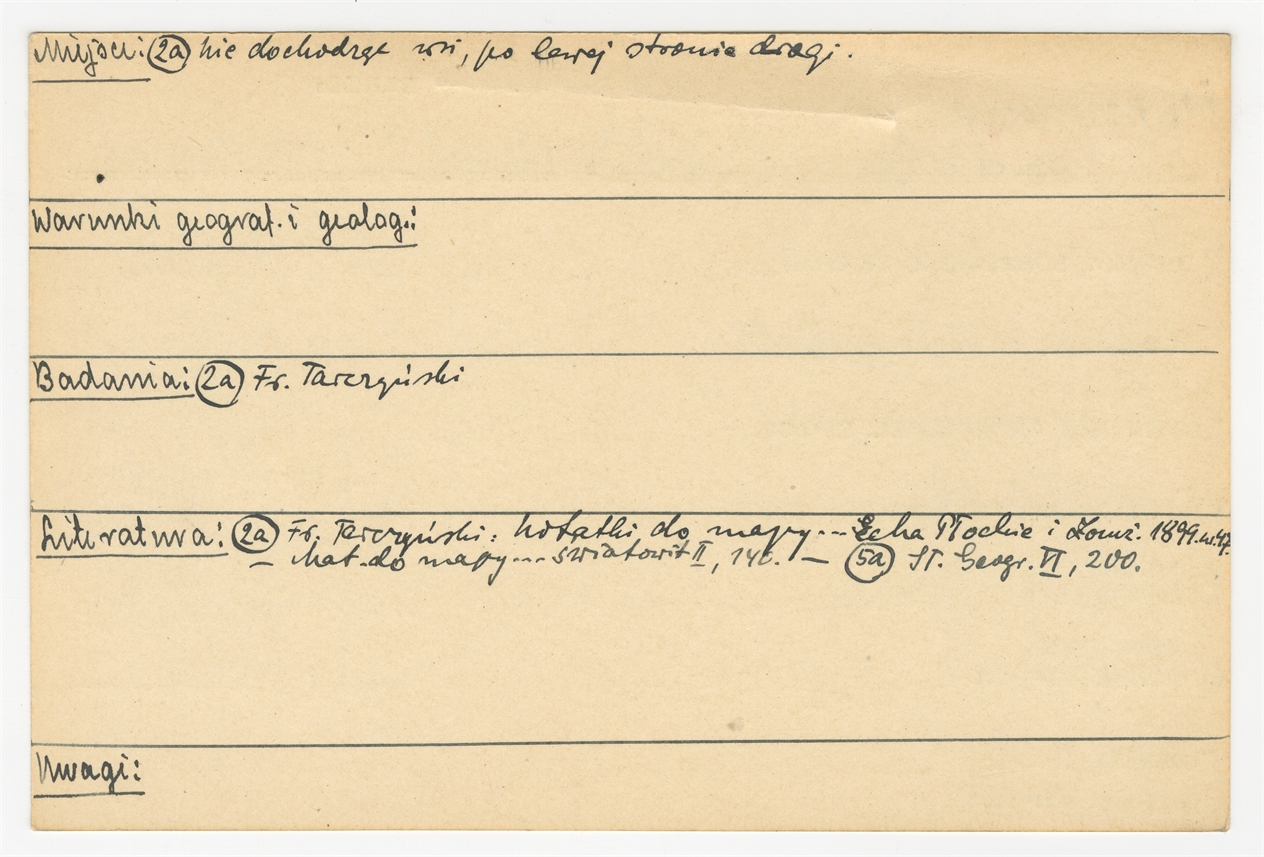 Miejsce: 2a nie dochodząc wsi, po lewej stronie drogi.
Warunki geograf. i geolog.:
Badania: 2a Fr. Tarczyński
Literatura: 2a Fr. Tarczyński: Notatki do mapy... Echa Płockie i Łomż. 1899. nr.
— Mat. do mapy... Światowit II, — 5a Sł. Geogr. VI, 200.
Uwagi: